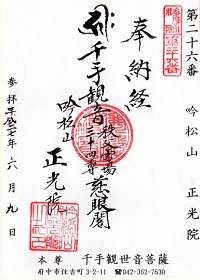 第二十六番　吟松山　正光院
奉納経
千手観音
慈眼閣
吟松山
正光院
参拝平成二七年六月九日
本尊　千手観世音菩薩
府中市住吉町3-2-11　☎042-362-7630